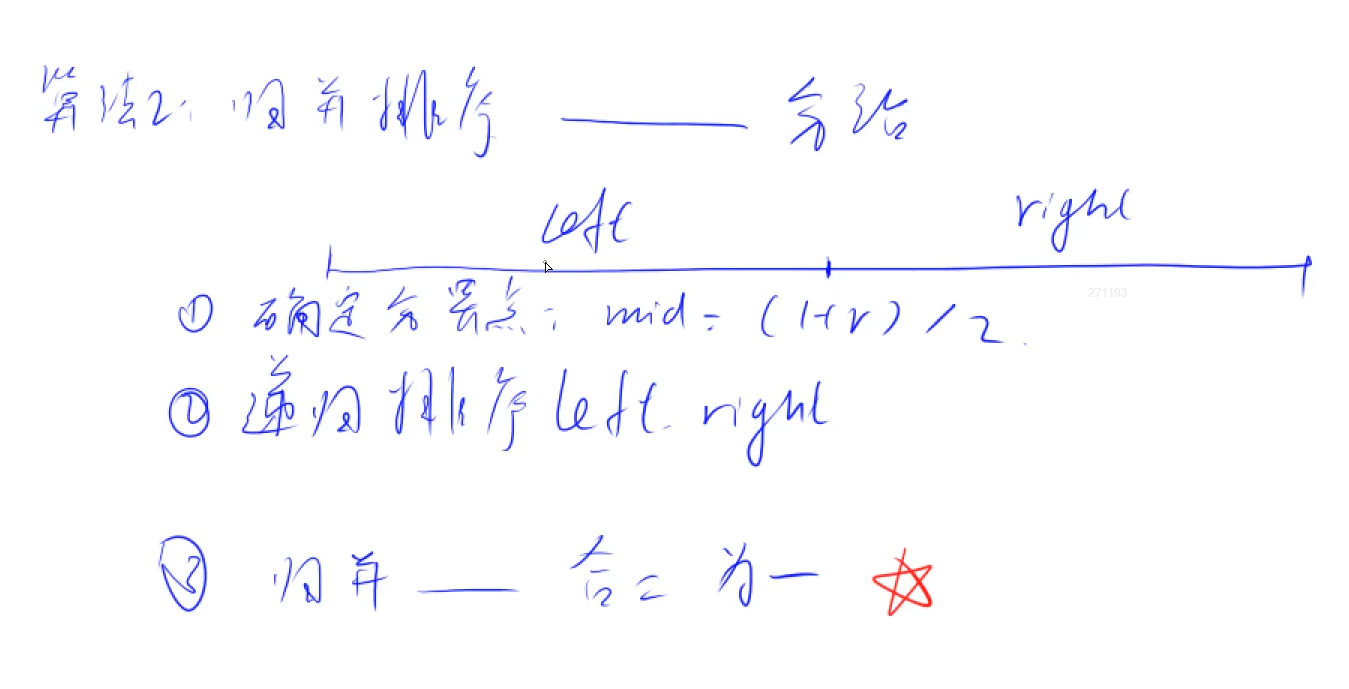 算法2: 归并排序 —— 分治
left right
271193
① 确定分界点: mid = (l+r) / 2.
② 递归排序 left. right
③ 归并 —— 合二为一